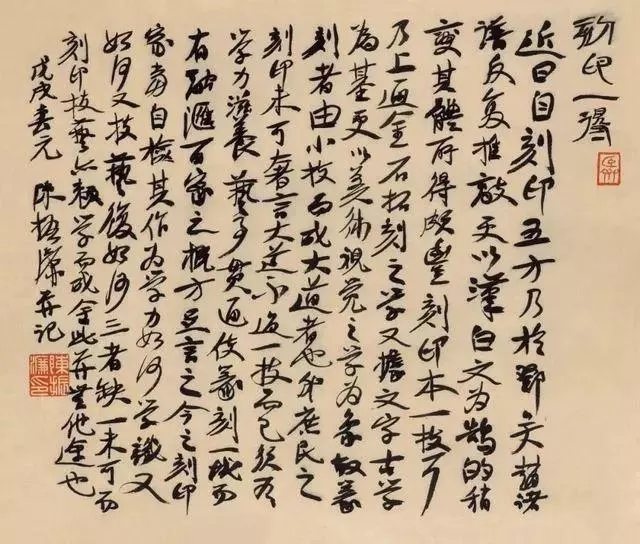 印一
近日自刻印五方乃於鄧吴趙諸
譜反复推敲更以漢白文為鵠的稍
變其體所得頗豐刻印本一技耳
乃上通金石拓刻之学又據文字古学
為基更以美術視覺之学為象故篆
刻者由小技而成大道者也庶民之
刻印未可奢言大道不過一技而已須有
学力滋養藝事貫通使篆刻一域而
有融滙百家之概方足言之今之刻印
家當自檢其作為学力如何学識又
如何又技藝復如何三者缺一未可而
刻印技藝学而成舍此并無他途也
戊戌春元 陳振濂并記
陳振濂印